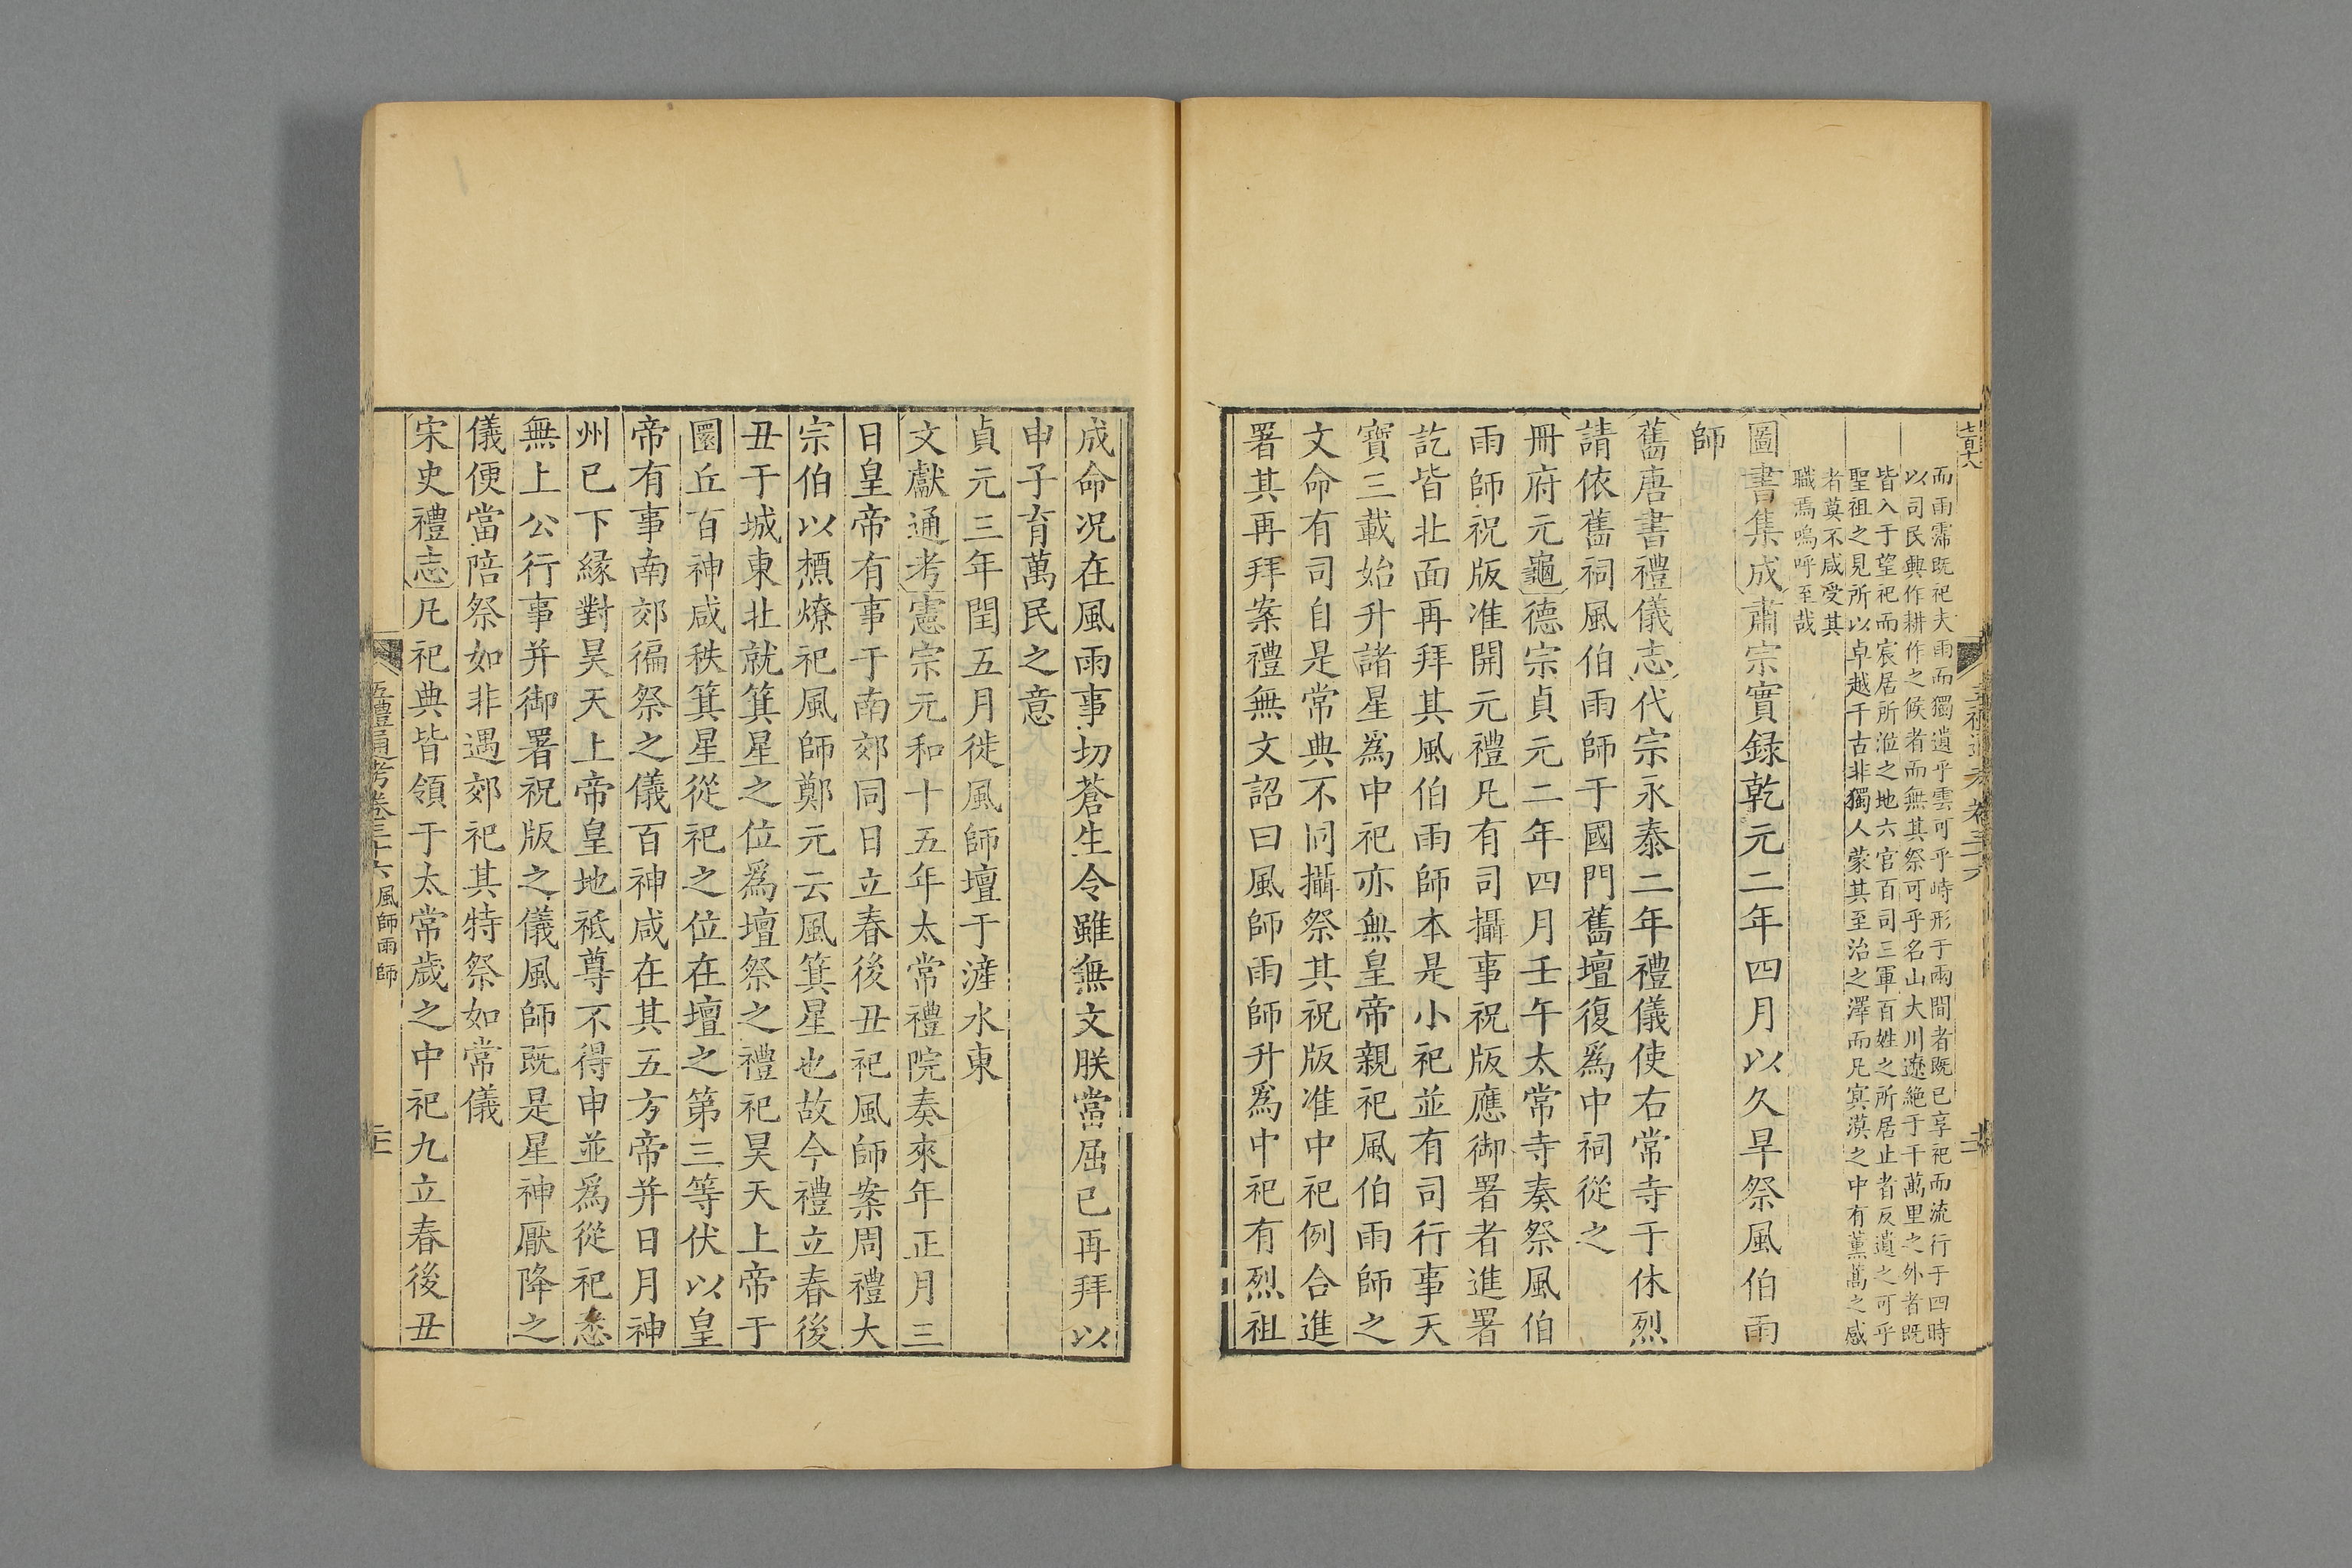 而雨霈既祀夫雨而獨遺乎雲可乎峙形于兩間者既已享祀而流行于四時
以司民興作耕作之候者而無其祭可乎名山大川遼絶于千萬里之外者既
皆入于望祀而宸居所涖之地六官百司三軍百姓之所居止者反遺之可乎
聖祖之見所以卓越千古非獨人蒙其至治之澤而凡冥漠之中有薰蒿之感
者莫不咸受其
職焉嗚呼至哉
圖書集成肅宗實録乾元二年四月以久旱祭風伯雨
師
舊唐書禮儀志代宗永泰二年禮儀使右常寺于休烈
請依舊祠風伯雨師于國門舊壇復爲中祠從之
冊府元龜德宗貞元二年四月壬午太常寺奏祭風伯
雨師祝版准開元禮凡有司攝事祝版應御署者進署
訖皆北面再拜其風伯雨師本是小祀並有司行事天
寶三載始升諸星爲中祀亦無皇帝親祀風伯雨師之
文命有司自是常典不同攝祭其祝版准中祀例合進
署其再拜案禮無文詔曰風師雨師升爲中祀有烈祖
成命况在風雨事切蒼生令雖無文朕當屈已再拜以
申子育萬民之意
貞元三年閏五月徙風師壇于滻水東
文獻通考憲宗元和十五年太常禮院奏來年正月三
日皇帝有事于南郊同日立春後丑祀風師案周禮大
宗伯以槱燎祀風師鄭元云風箕星也故今禮立春後
丑于城東北就箕星之位爲壇祭之禮祀昊天上帝于
圜丘百神咸秩箕星從祀之位在壇之第三等伏以皇
帝有事南郊徧祭之儀百神咸在其五方帝并日月神
州已下緣對昊天上帝皇地祗尊不得申並爲從祀悉
無上公行事并御署祝版之儀風師既是星神厭降之
儀便當陪祭如非遇郊祀其特祭如常儀
宋史禮志凡祀典皆領于太常歲之中祀九立春後丑
五禮通考卷三十六 風師雨師